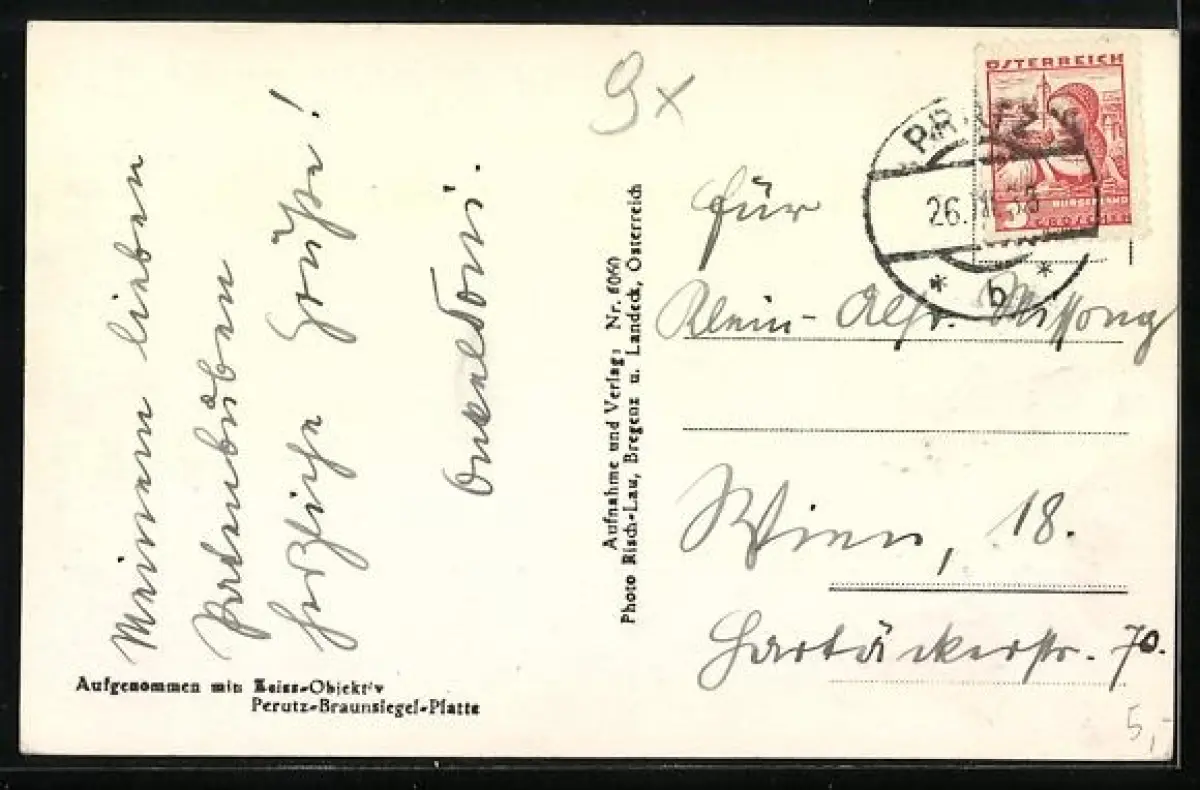 Meinem lieben
Patenbüben
herzliche Grüße!
Onkel Toni.
Aufgenommen mit Zeiss-Objektiv
Perutz-Braunsiegel-Platte
Aufnahme und Verlag: Nr. 6060
Photo Risch-Lau, Bregenz u. Landeck, Österreich
9x
ÖSTERREICH
BURGENLAND
GROSCHEN
26.
* b *
Für
Klein- Alfr. Missong
Wien, 18.
Hartäckerstr. 70.
5,-